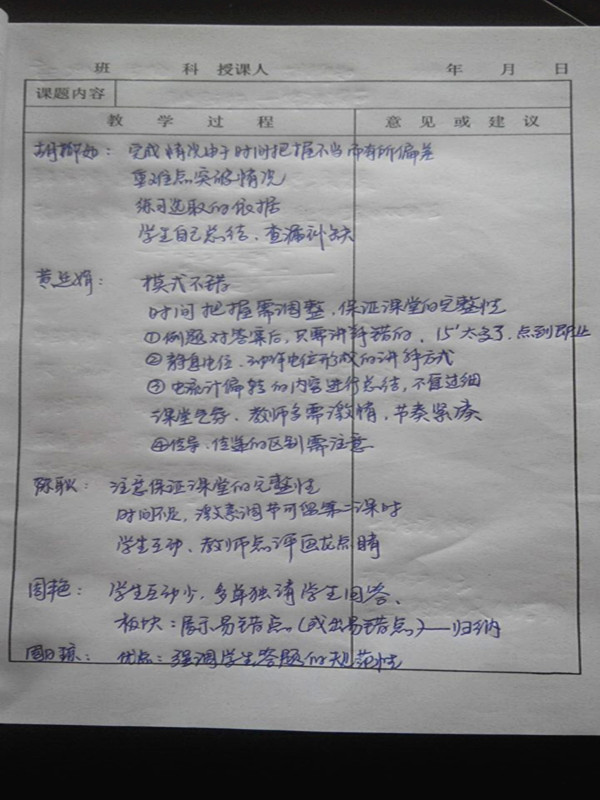 班 科 授课人 年 月 日
课题内容
教 学 过 程 意 见 或 建 议
胡柳如：完成情况由于时间把握不当而有所偏差
重难点突破情况
练习选取的依据
学生自己总结、查漏补缺
黄 娟：模式不错
时间把握需调整，保证课堂的完整性
①例题对答案后，只要讲解错的，15'太多了，点到即止
②静息电位、动作电位形成的讲解方式
③电流计偏转的内容进行总结，不宜过细
课堂气氛，教师多需激情，节奏紧凑
④传导、传递的区别需注意
陈耿：注意保证课堂的完整性
时间不足，激素调节可留第二课时
学生互动、教师点评画龙点睛
周艳：学生互动少，多单独请学生回答、
板块：展示易错点（或出易错点）——归纳
周日琼：优点：强调学生答题的规范性